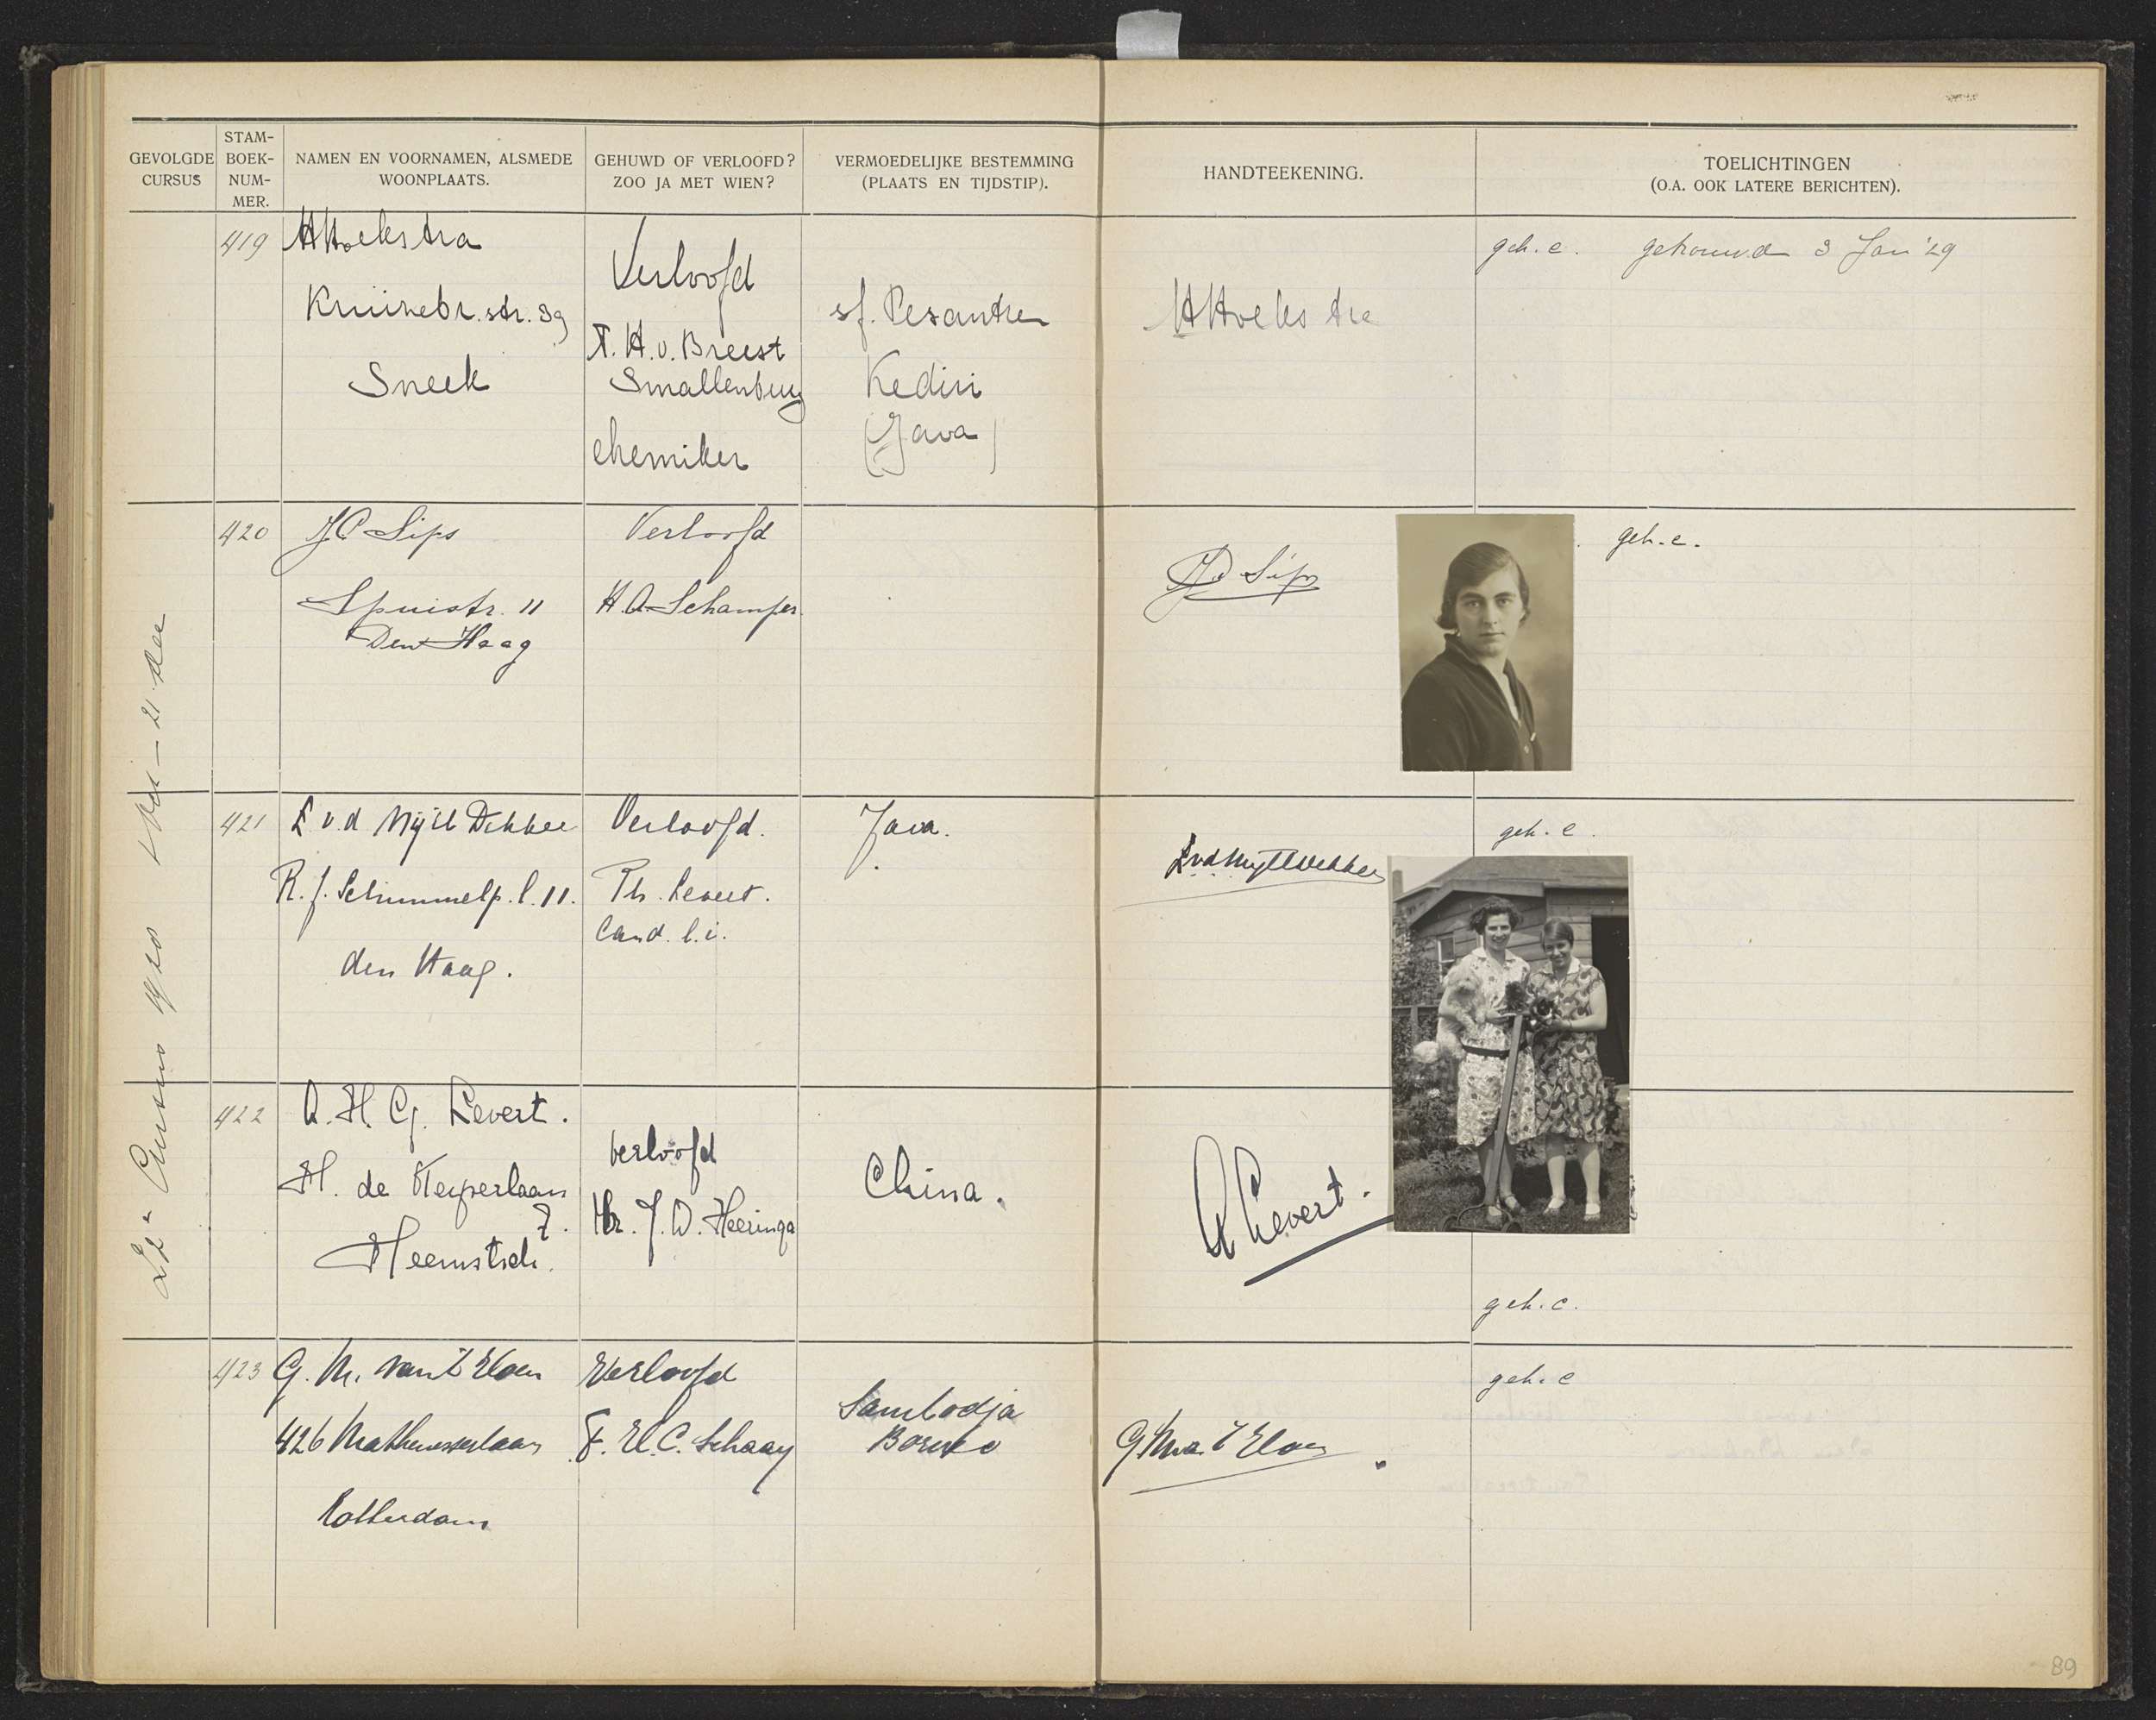 GEVOLGDE CURSUS
STAM-BOEK-NUM-MER.
NAMEN EN VOORNAMEN, ALSMEDE WOONPLAATS.
GEHUWD OF VERLOOFD? ZOO JA MET WIEN?
VERMOEDELIJKE BESTEMMING (PLAATS EN TIJDSTIP).
HANDTEEKENING.
TOELICHTINGEN (O.A. OOK LATERE BERICHTEN).
22e Cursus 1928
21 dec
419
HHoekstra
Sneek
Verloofd
T. H. v. Breest
Smallenburg
chemiker
s.f. Pesantren
Kediri
(Java)
HHoekstra
geh. c. getrouwd 3 Jan '29
420
J C Sips
Spuistr. 11
Den Haag
Verloofd
H. A. Schamper
Sips
geh. c.
421
E v. d Mijll Dekker
R. J. Schimmelp. l. 11.
den Haag.
Verloofd.
Th. Levert.
Cand. l. i.
Java.
E v d Myll Dekker
geh. c.
422
A. H. G. Levert.
H. de Keyserlaan
7.
Heemstede.
verloofd
Hr. J. D. Heeringa
China.
A Levert.
geh. c.
423
G. M. van 't Eloen
426 Mathenesserlaan
Rotterdam
Verloofd
F. H. C. Schaay
Sambodja
Borneo
geh. c
89